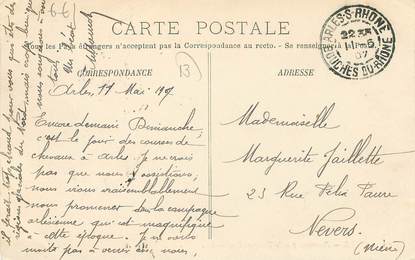 CARTE POSTALE
Tous les Pays étrangers n'acceptent pas la Correspondance au recto. - Se renseigner à la Poste
CORRESPONDANCE
ADRESSE
ARLES-S-RHONE
22
11 - 5
07
BOUCHES DU RHONE
13
Arles, 11 Mai 1907
Encore demain Dimanche,
c'est le jour des courses de
chevaux à Arles. Je ne crois
pas que nous y assistions,
nous irons vraisemblablement
nous promener dans la campagne
arlésienne qui est magnifique
à cette époque. Je ne vous
invite pas à venir chez nous,
il ferait trop chaud pour vous qui êtes des
régions glaciales du Nord
Mademoiselle
Marguerite Jaillette
25 Rue Félix Faure
Nevers.
(Nièvre)